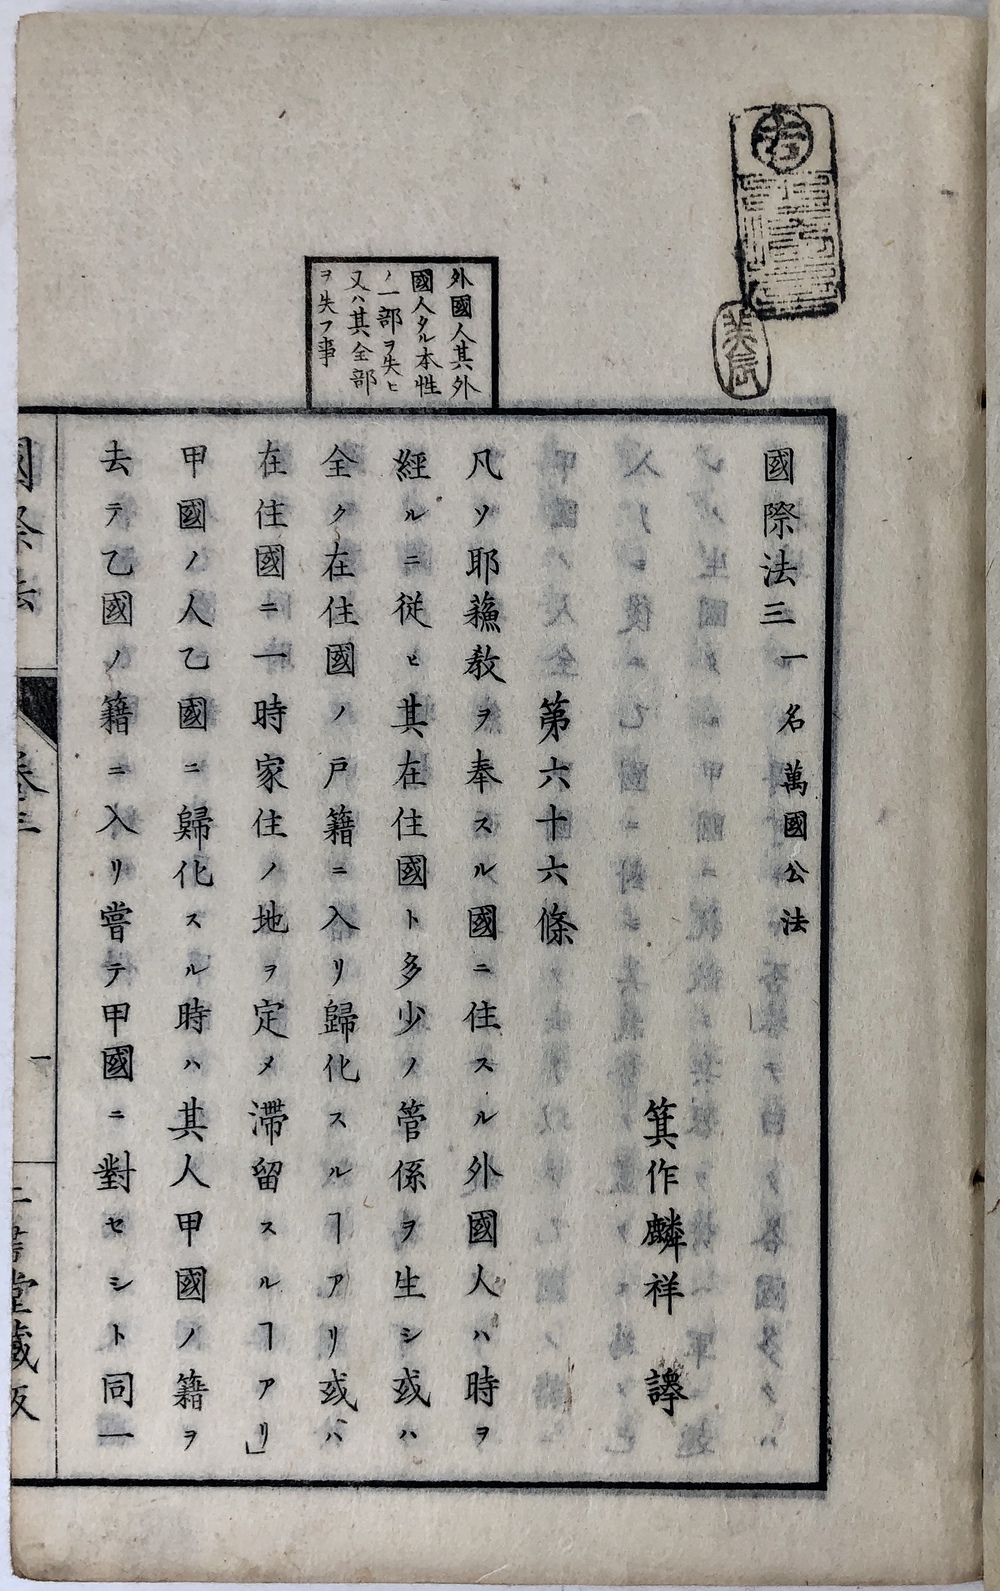 國際法三 一名萬國公法
箕作麟祥 譯
第六十六條
外國人其外
國人タル本性
ノ一部ヲ失ヒ
又ハ其全部
ヲ失フ事
凡ソ耶蘓教ヲ奉スル國ニ住スル外國人ハ時ヲ
經ルニ從ヒ其在住國ト多少ノ管係ヲ生シ或ハ
全ク在住國ノ戸籍ニ入リ歸化スルヿアリ或ハ
在住國ニ一時家住ノ地ヲ定メ滞留スルヿアリ」
甲國ノ人乙國ニ歸化スル時ハ其人甲國ノ籍ヲ
去テ乙國ノ籍ニ入リ嘗テ甲國ニ對セシト同一
國際法 卷三 一 二書堂藏版